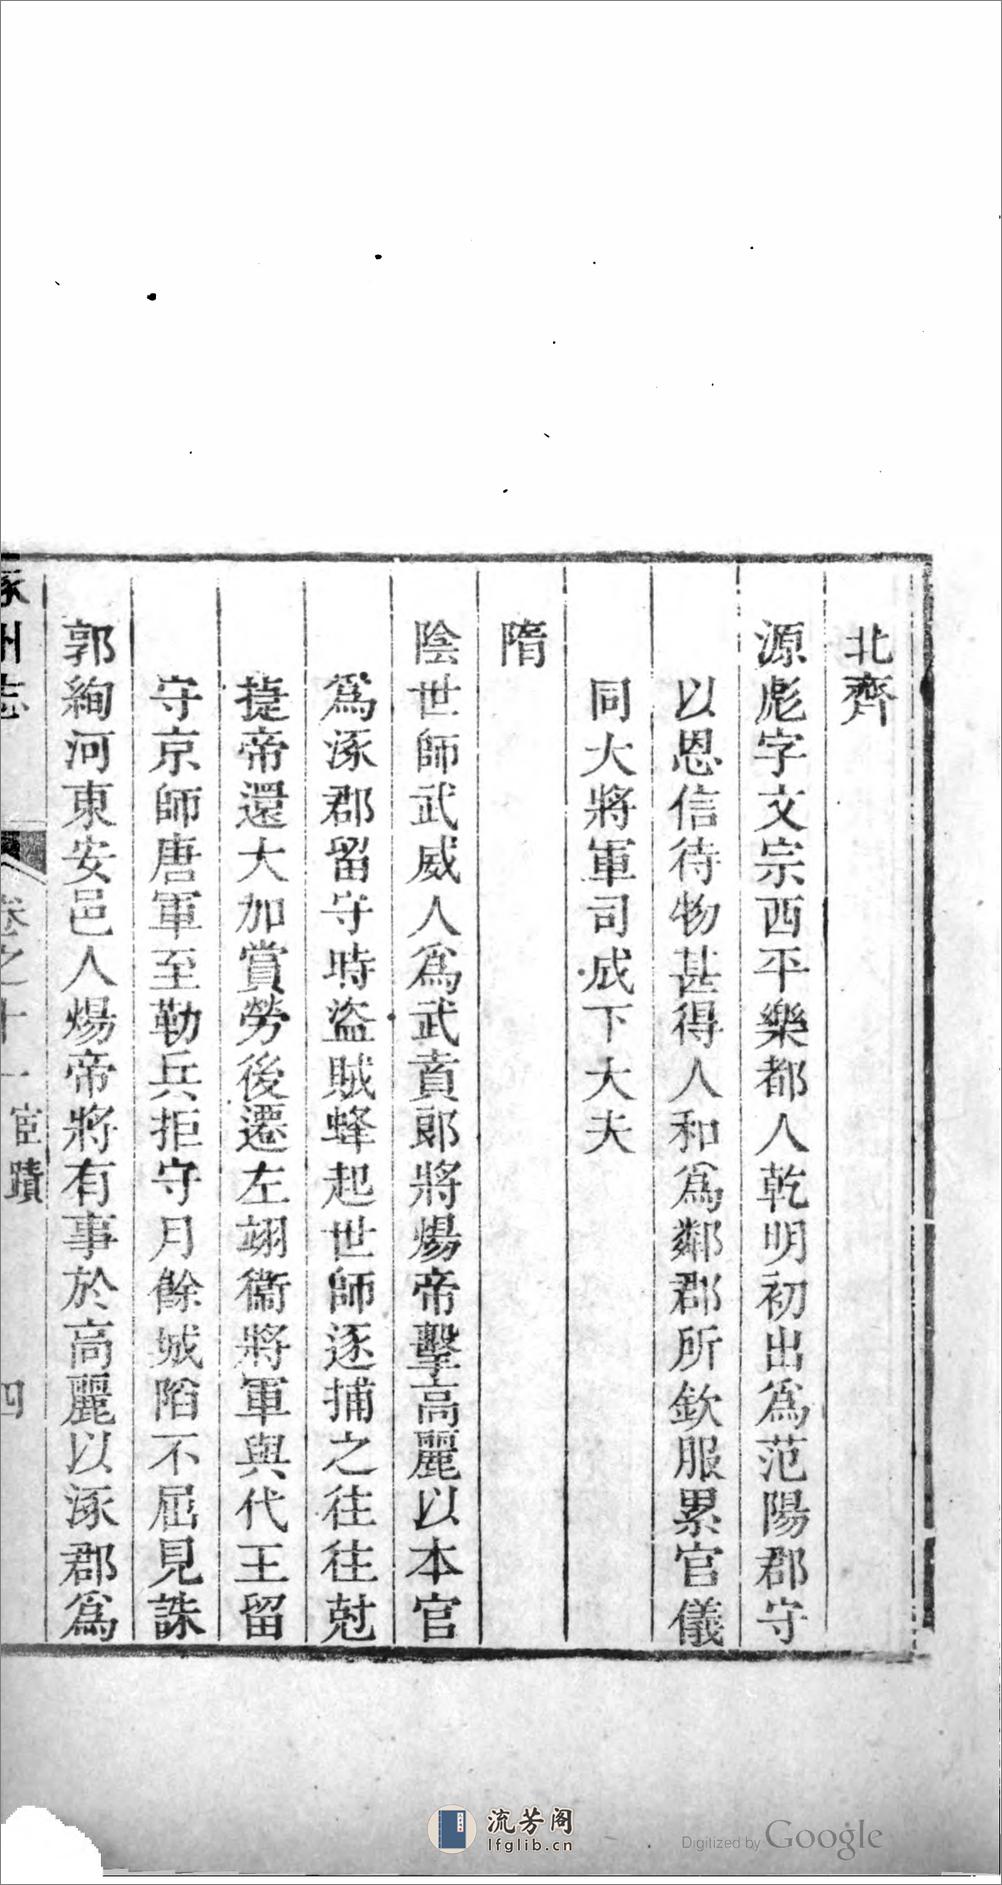 北齊
源彪字文宗西平樂都人乾明初出爲范陽郡守
以恩信待物甚得人和爲鄰郡所欽服累官儀
同大將軍司成下大夫
隋
陰世師武威人爲武賁郎將煬帝擊高麗以本官
爲涿郡留守時盜賊蜂起世師逐捕之往往尅
㨗帝還大加賞勞後遷左翊衞將軍與代王留
守京師唐軍至勒兵拒守月餘城陷不屈見誅
郭絢河東安邑人煬帝將有事於高麗以涿郡爲
涿州志 卷之十一 宦蹟 四
流芳阁
lfglib.cn
Digitized by Google